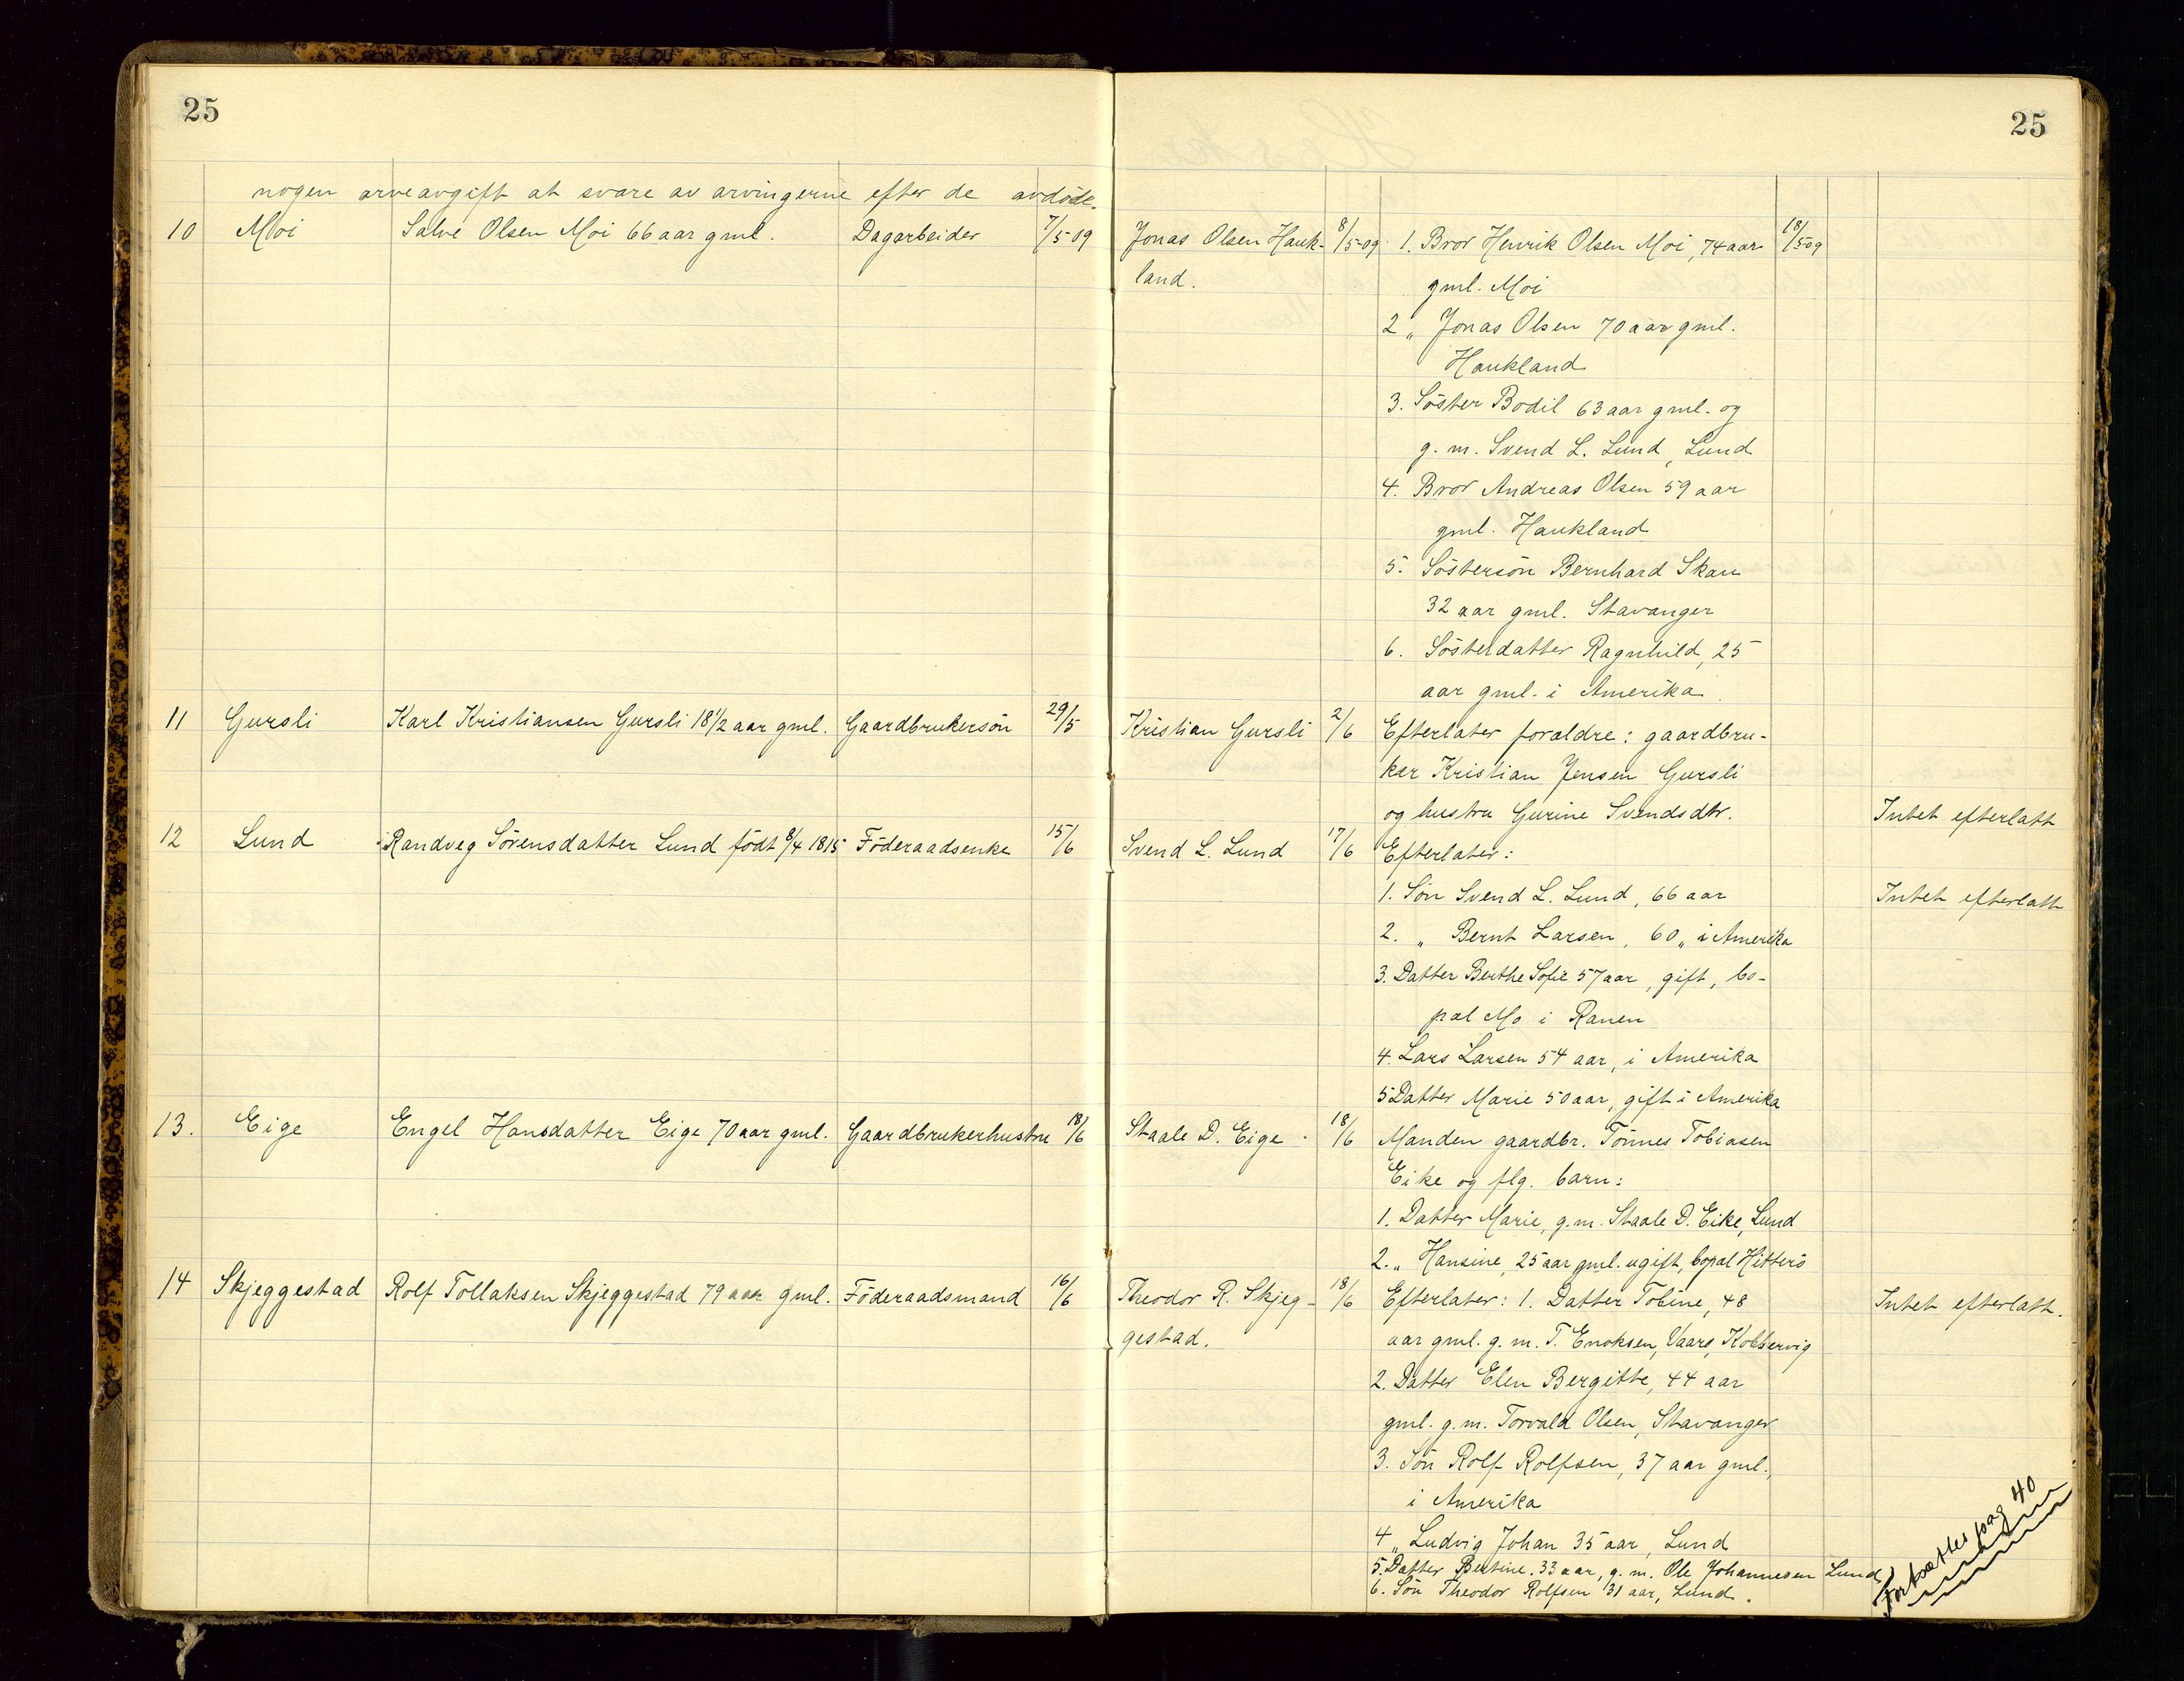 25
25
nogen arveavgift at svare av arvingerne efter de avdöde.
10 Moi Salve Olsen Moi 66 aar gml. Dagarbeider 7/5 09 Jonas Olsen Hauk- 8/5-09 1. Bror Henrik Olsen Moi, 74 aar 18/5 09
land. gml. Moi
2 „ Jonas Olsen 70 aar gml.
Haukland
3. Söster Bodil 63 aar gml. og
g. m. Svend L. Lund, Lund
4. Bror Andreas Olsen 59 aar
gml. Haukland
5. Söstersön Bernhard Skau
32 aar gml. Stavanger
6. Sösterdatter Ragnhild, 25
aar gml. i Amerika.
11 Gursli Karl Kristiansen Gursli 18 1/2 aar gml. Gaardbrukersön 29/5 Kristian Gursli 2/6 Efterlater foraldre: gaardbru-
ker Kristian Jensen Gursli
og hustru Gurine Svendsdtr. Intet efterlatt
12 Lund Randveg Sörensdatter Lund födt 8/4 1815 Föderaadsenke 15/6 Svend L. Lund 17/6 Efterlater:
1. Sön Svend L. Lund, 66 aar Intet efterlatt
2. „ Bernt Larsen, 60 „ i Amerika
3. Datter Berthe Sofie 57 aar, gift, bo-
pæl Mo i Ranen
4. Lars Larsen 54 aar, i Amerika
5 Datter Marie 50 aar, gift i Amerika
13. Eige Engel Hansdatter Eige 70 aar gml. Gaardbrukerhustru 18/6 Staale D. Eige. 18/6 Manden gaardbr. Tönnes Tobiasen
Eike og flg. barn:
1. Datter Marie, g. m. Staale D. Eike, Lund
2. „ Hansine, 25 aar gml. ugift, bopæl Hitterö
14 Skjeggestad Rolf Tollaksen Skjeggestad 79 aar gml. Föderaadsmand 16/6 Theodor R. Skjeg- 18/6 Efterlater: 1. Datter Tobine, 48 Intet efterlatt.
gestad. aar gml. g. m. T. Enoksen, Vaars, Kobbervig
2. Datter Elen Bergitte, 44 aar
gml. g. m. Torvald Olsen, Stavanger
3. Sön Rolf Rolfsen, 37 aar gml.,
i Amerika
4 „ Ludvig Johan 35 aar, Lund
5. Datter Bertine. 33 aar, g. m. Ole Johannesen Lund
6. Sön Theodor Rolfsen 31 aar, Lund.
Fortsættes pag 40